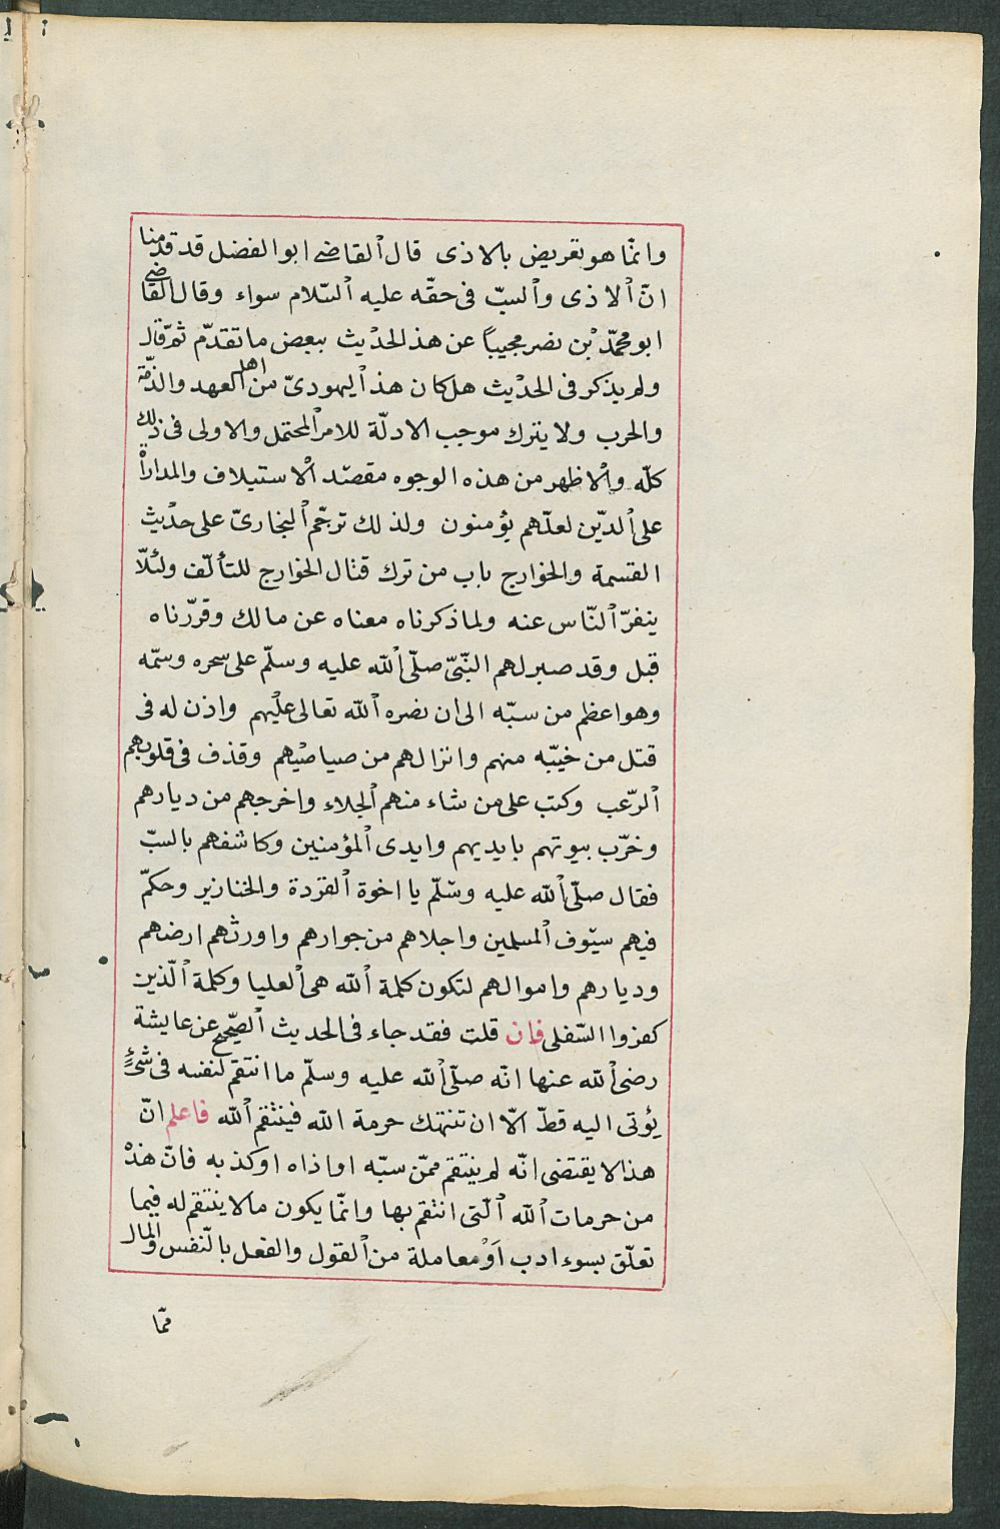 وانّما هو تعريض بالاذى قال القاضى ابو الفضل قد قدمنا
انّ الاذى والسبّ فى حقّه عليه السّلام سواء وقال القاضى
ابو محمّد بن نصر مجيباً عن هذ الحديث ببعض ما تقدّم ثمّ قال
ولم يذكر فى الحديث هل كان هذ اليهودىّ من اهل العهد والذّمّة
والحرب ولا يترك موجب الادلّة للامر المحتمل والاولى فى ذلك
كلّه والاظهر من هذه الوجوه مقصد الاستيلاف والمداراة
على الدّين لعلّهم يؤمنون ولذلك ترجّم البخارىّ على حديث
القسمة والخوارج باب من ترك قتال الخوارج للتألّف ولئلّا
ينفرّ النّاس عنه ولما ذكرناه معناه عن مالك وقرّرناه
قبل وقد صبر لهم النّبىّ صلّى الله عليه وسلّم على سحره وسمّه
وهو اعظم من سبّه الى ان نصره الله تعالى عليهم واذن له فى
قتل من خيّبه منهم وانزالهم من صياصيهم وقذف فى قلوبهم
الرّعب وكتب على من شاء منهم الجلاء واخرجهم من ديارهم
وخرّب بيوتهم بايديهم وايدى المؤمنين وكاشفهم بالسبّ
فقال صلّى الله عليه وسّلّم يا اخوة القردة والخنازير وحكمّ
فيهم سيّوف المسلمين واجلاهم من جوارهم واورثهم ارضهم
وديارهم واموالهم لتكون كلمة الله هى العليا وكلمة الّذين
كفروا السّفلى فان قلت فقد جاء فى الحديث الصّحيح عن عايشة
رضى الله عنها انّه صلّى الله عليه وسلّم ما انتقم لنفسه فى شئ
يؤتى اليه قطّ الّا ان تنتهك حرمة الله فينتقم الله فاعلم انّ
هذا لا يقتضى انّه لم ينتقم ممّن سبّه او اذاه او كذبه فانّ هذه
من حرمات الله الّتى انتقم بها وانّما يكون مالا ينتقم له فيما
تعلّق بسوء ادب او معاملة من القول والفعل بالنّفس والمال
ممّا